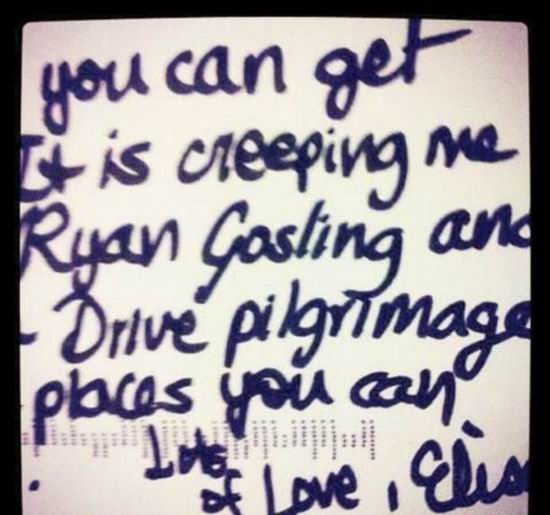 you can get
It is creeping me
Ryan Gosling and
- Drive pilgrimage
places you can
Lots
of Love, Elisa